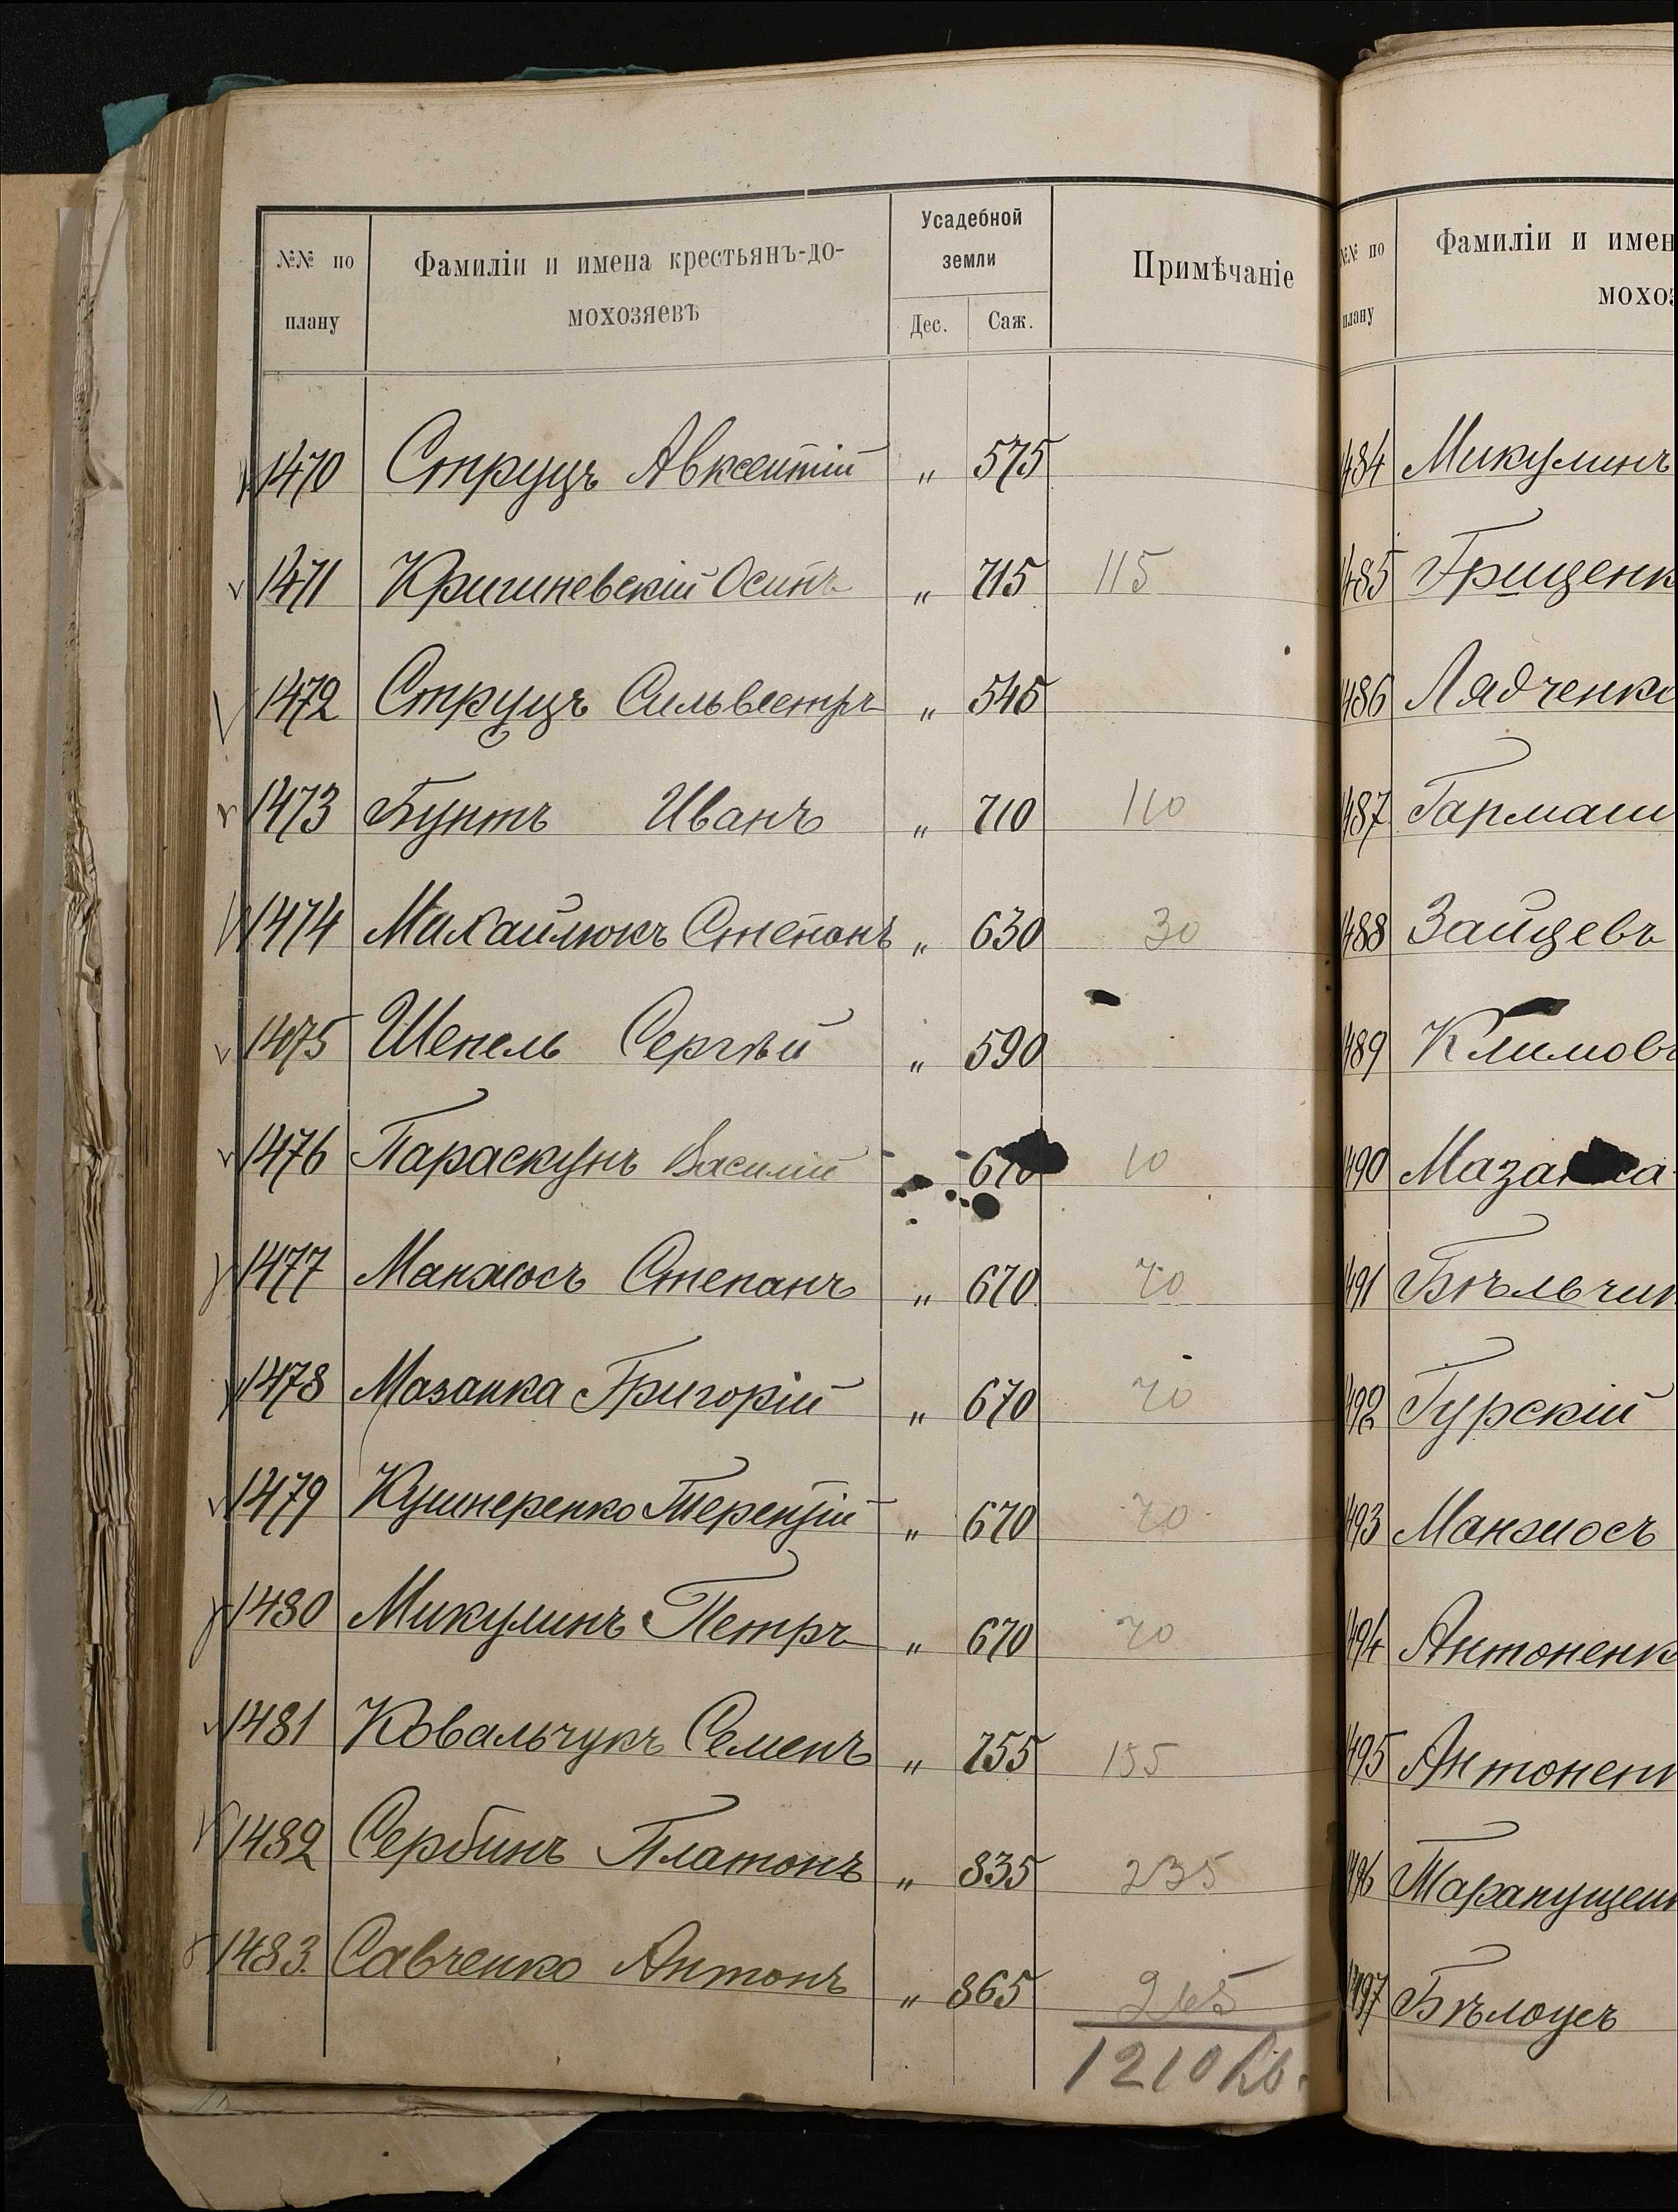 №№ по плану Фамиліи и имена крестьянъ-до-мохозяевъ Усадебной земли Дес. Саж. Примѣчаніе
1470 Струцъ Авксентій „ 575
1471 Кришневскій Осипъ „ 715 115
1472 Струцъ Сильвестръ „ 545
1473 Бунтъ Иванъ „ 710 110
1474 Михайлюкъ Степанъ „ 630 30
1475 Шепель Сергѣй „ 590
1476 Параскунъ Василій 610 10
1477 Манжосъ Степанъ „ 670 70
1478 Мазанка Григорій „ 670 70
1479 Кушнеренко Терентій „ 670 70
1480 Микулинъ Петръ „ 670 70
1481 Ковальчукъ Семенъ „ 755 155
1482 Сербинъ Платонъ „ 835 235
1483. Савченко Антонъ „ 865 265
1210 кв.
№№ по плану Фамиліи и имен
мохоз
1484 Микулинъ
1485 Грищенк
1486 Лядченко
1487 Гармаш
1488 Зайцевъ
1489 Климовъ
1490 Мазанка
1491 Бѣльчик
1492 Гурскій
1493 Манжосъ
1494 Антоненк
1495 Антонен
1496 Тарапущен
1497 Бѣлоусъ